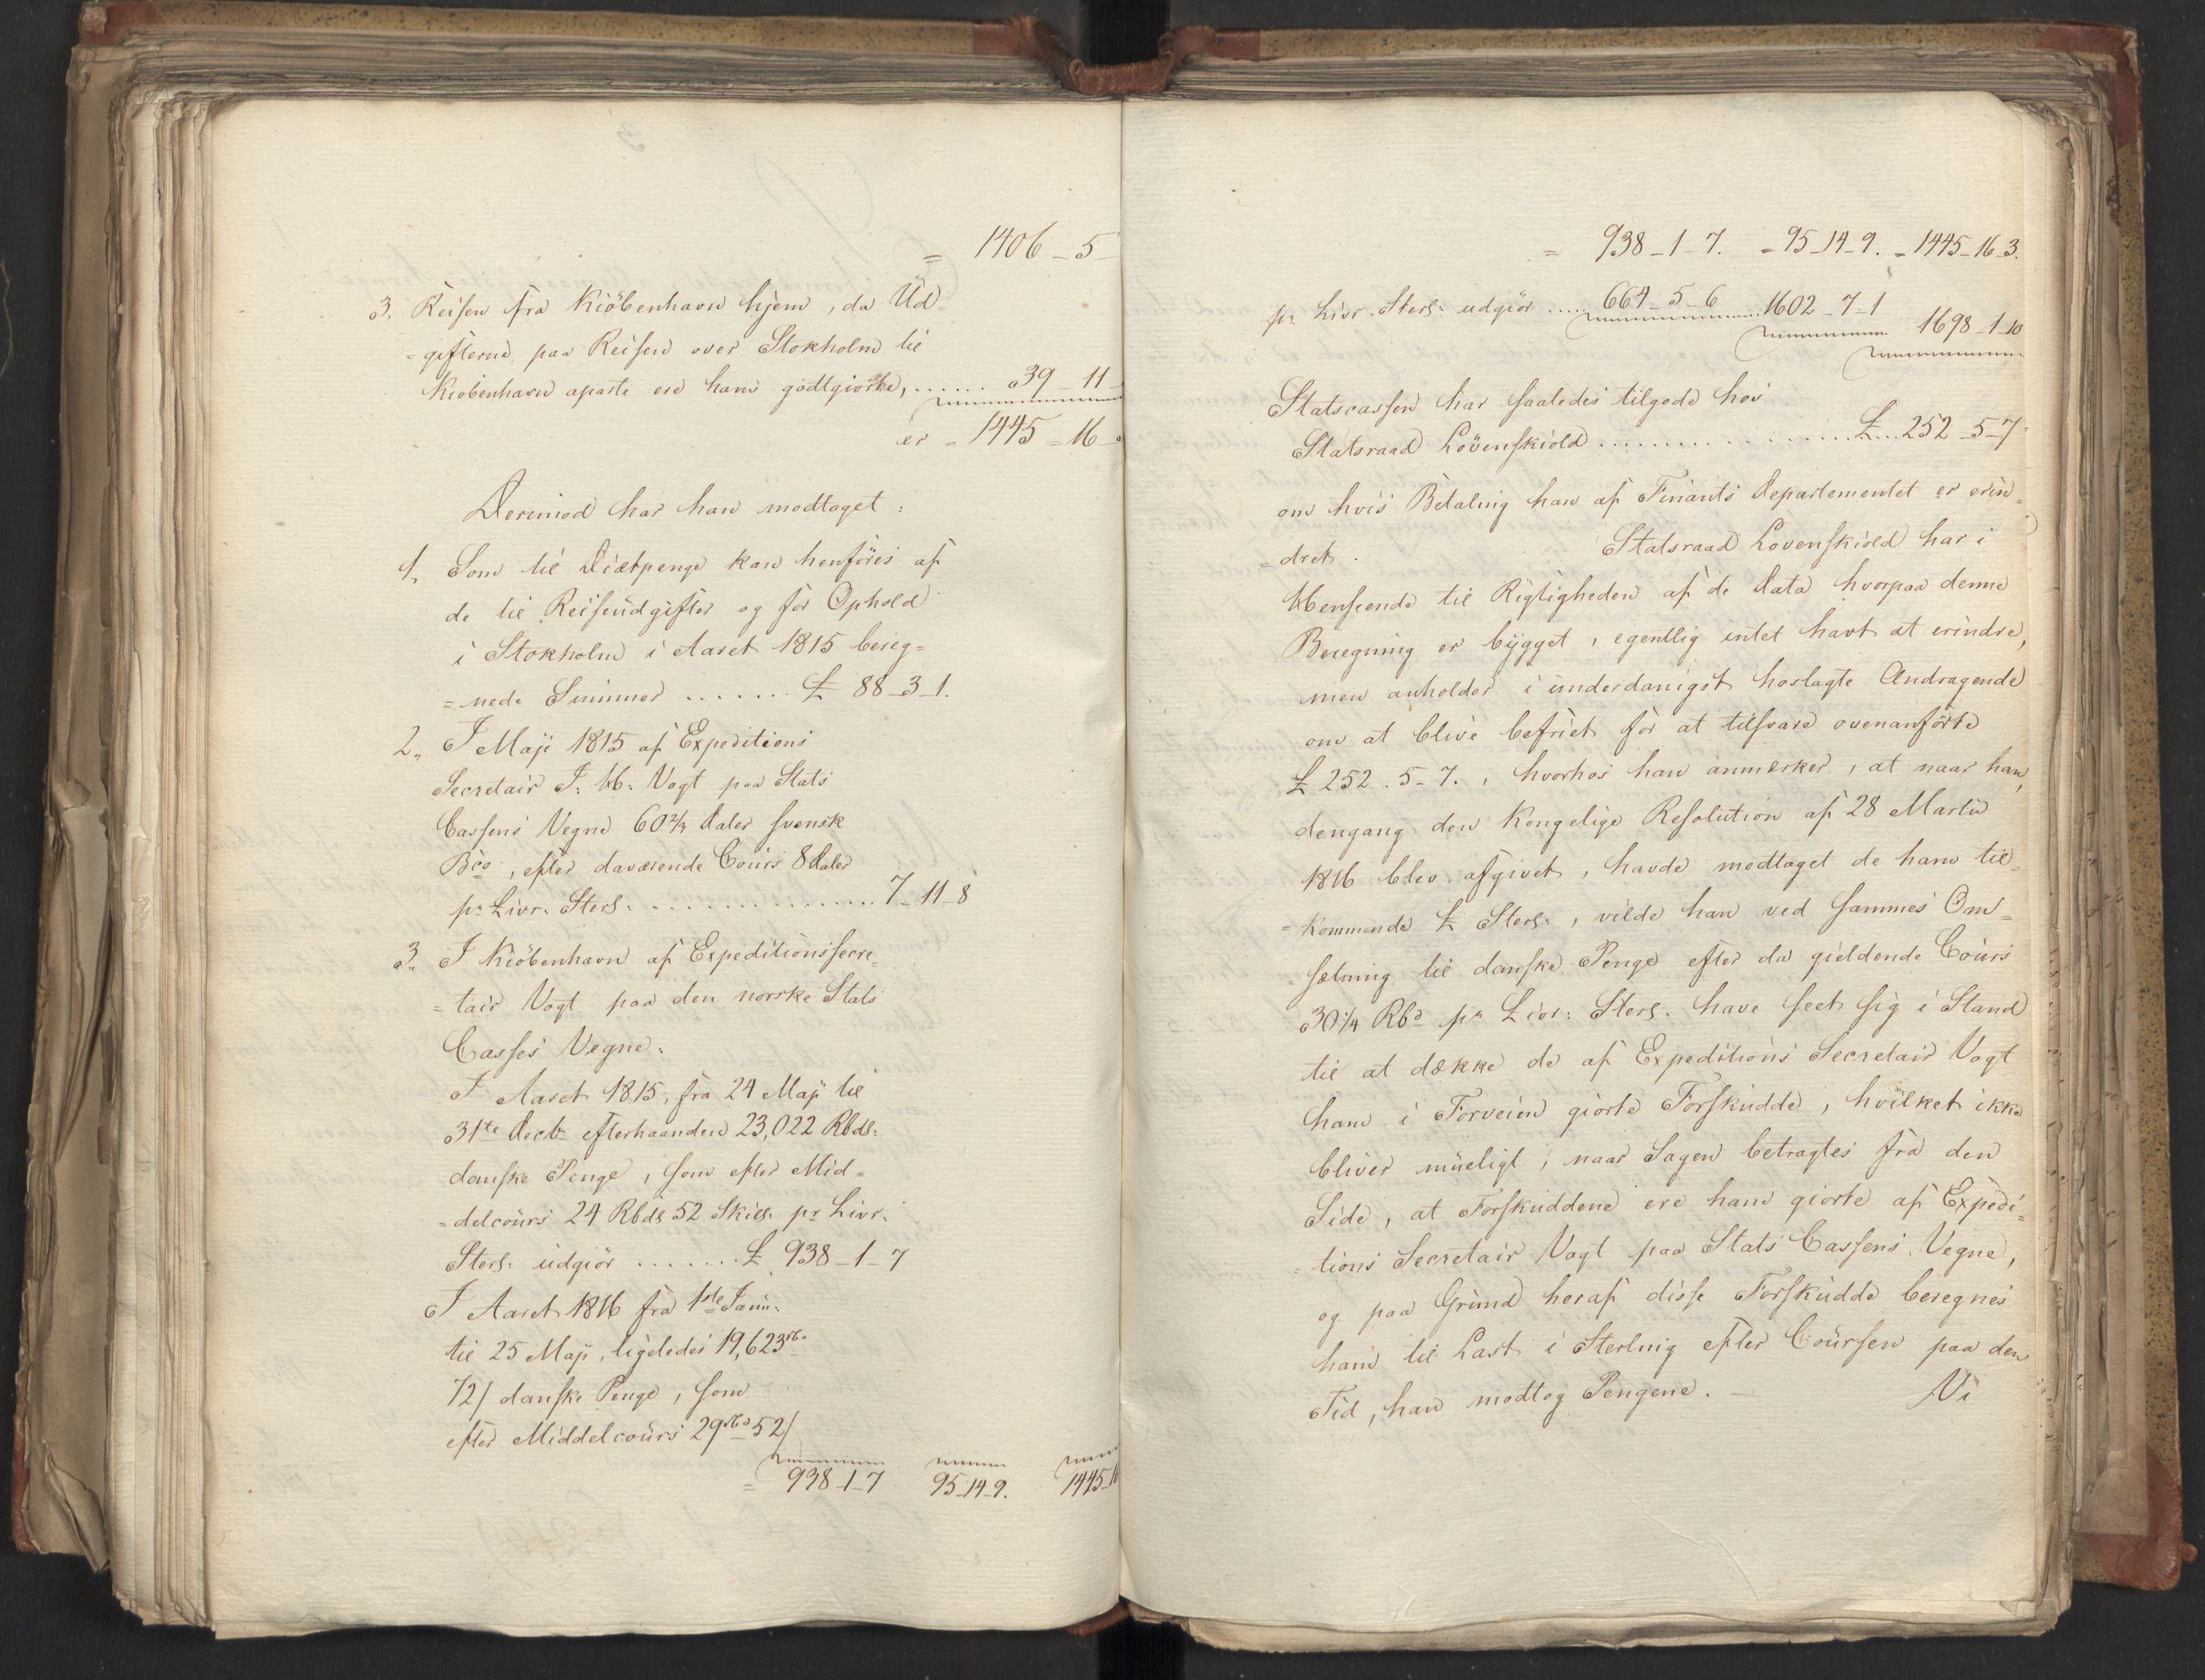 = 1406_5_
3. Reisen fra Kiöbenhavn hjem, da Ud-
=gifterne paa Reisen over Stokholm til
Kiöbenhavn aparte ere ham godtgiorte, ...... 39_11_
er = 1445_16_
Derimod har han modtaget:
1. Som til Diætpenge kan henføres af
de til Reiseudgifter og for Ophold
i Stokholm i Aaret 1815 bereg=
=nede Summer ....... £ 88_3_1.
2. I Maji 1815 af Expeditions
Secretair J: H: Vogt paa Stats
Cassens Vegne 60 2/3 Daler svensk
Bco, efter daværende Cours 8 Daler
pr Livr. Sterl: ............... 7_11_8
3. I Kiöbenhavn af Expeditionssecre=
=tair Vogt paa den norske Stats
Casses Vegne:
I Aaret 1815, fra 24 Maji til
31te Decbr efterhaanden 23,022 Rbdl.
danske Penge, som efter Mid=
=delcours 24 Rbdl 52 Skill. pr Livr.
Sterl. udgiör ....... £ 938_1_7
I Aaret 1816 fra 1ste Janu:
til 25 Maji, ligeledes 19,623 rb.
72/ danske Penge, som
efter Middelcours 29 rbd 52/
= 938_1_7 95_14_9. 1445_16
= 938_1_7. = 95_14_9. = 1445_16_3.
pr Livr. Sterl. udgiör ..... 664_5_6 ... 1602_7_1
1698_1_10
Statscassen har saaledes tilgode hos
Statsraad Lövenskiold ............... £ .. 252_5_7
om hvis Betaling han af Finants Departementet er erin=
=dret. Statsraad Lövenskiold har i
Henseende til Rigtigheden af de Data hvorpaa denne
Beregning er bygget, egentlig intet havt at erindre,
men anholder i underdanigst hoslagte Andragende
om at blive befriet for at tilsvare ovenanførte
£ 252. 5_7., hvorhos han anmærker, at naar han,
dengang den Kongelige Resolution af 28 Martii
1816 blev afgivet, havde modtaget de ham til=
=kommende £ Sterl., vilde han ved sammes Om=
=sætning til danske Penge efter da gieldende Cours
30 1/4 Rbd pr Livr: Sterl. have seet sig i Stand
til at dække de af Expeditions Secretair Vogt
ham i Forveien giorte Forskudde, hvilket ikke
bliver mueligt, naar Sagen betragtes fra den
Side, at Forskuddene ere ham giorte af Expedi=
=tions Secretair Vogt paa Stats Cassens Vegne,
og paa Grund heraf disse Forskudde beregnes
ham til Last i Sterling efter Coursen paa den
Tid, han modtog Pengene. — Vi